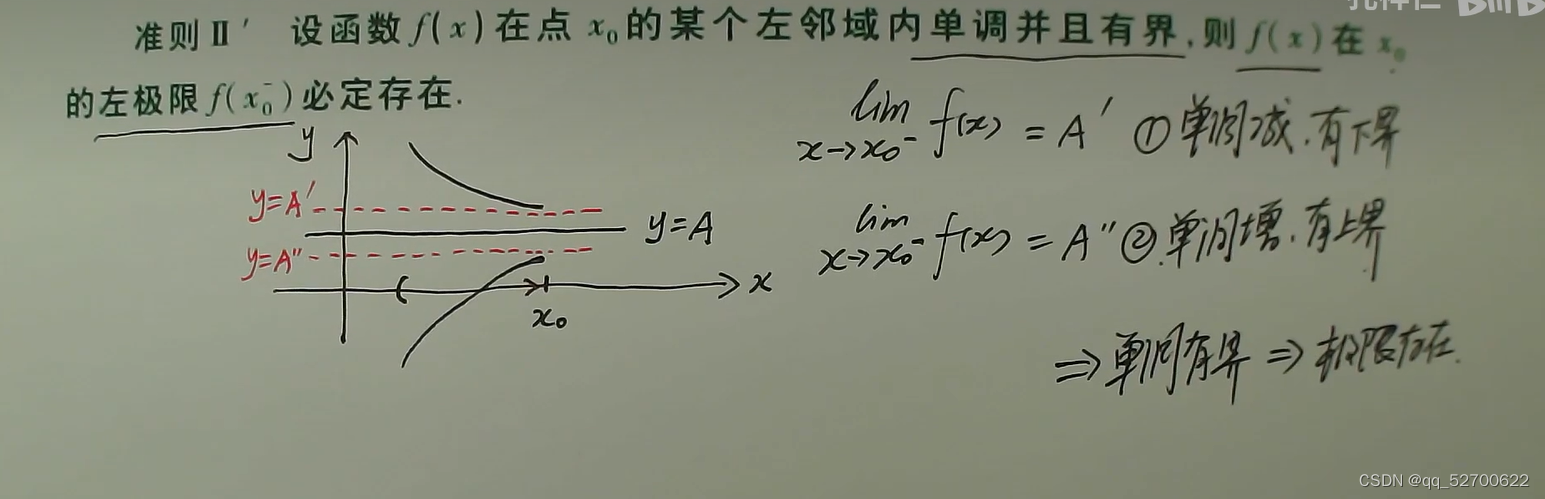 准则 II′ 设函数 f(x) 在点 x₀ 的某个左邻域内单调并且有界,则 f(x) 在 x₀
的左极限 f(x₀⁻) 必定存在.
lim x→x₀⁻ f(x) = A′ ①单调减.有下界
lim x→x₀⁻ f(x) = A″ ②单调增.有上界
⇒单调有界⇒极限存在.
y
y=A′
y=A
y=A″
x
x₀
CSDN @qq_52700622